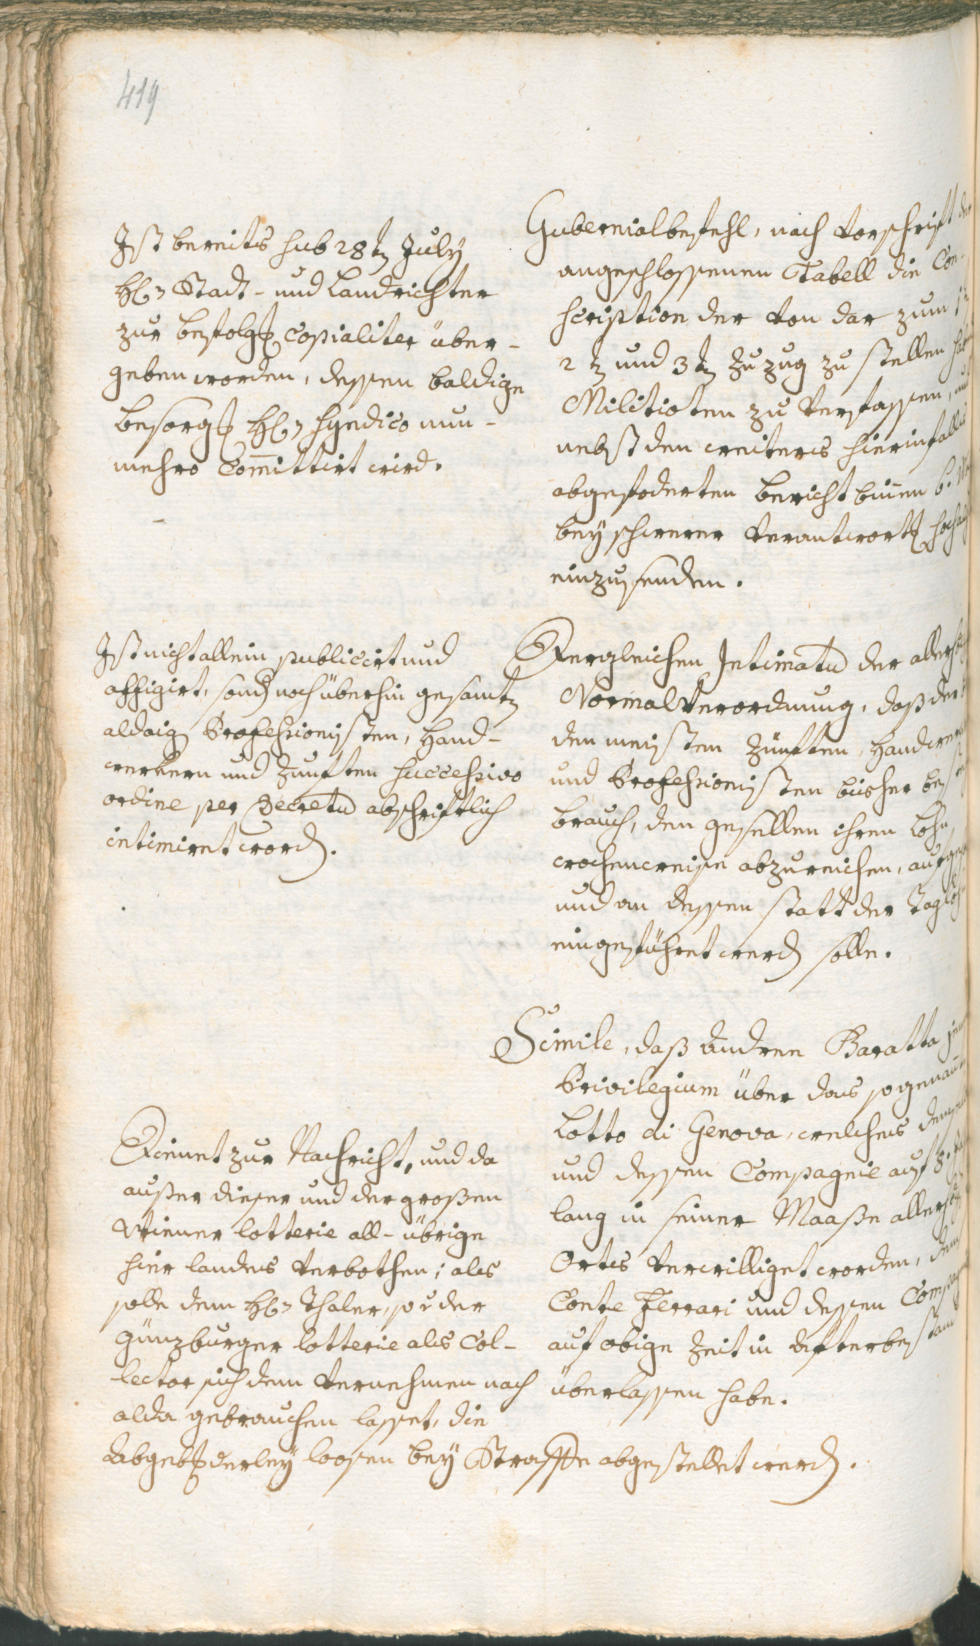 419
Ist bereits sub 28t July
H: Stadt- und Landrichter
zur befolgg copialiter über-
geben worden, dessen baldige
besorgg H: Syndico nun-
mehro Com̄ittirt wird.
Gubernialbefehl, nach Vorschrift
angeschlossenen Tabell die Con-
scription der von dar zum
2t und 3t Zuzug zu stellen
Militioten zu Verfassen,
nebst den weiters hierinfalls
abgefoderten Bericht biñen
bey schwerer Verantwortg
einzusenden.
Ist nicht allein publicirt und
affigirt, sond noch überhin gesamt
aldaig Professionisten, Hand-
werkern und Zunften successivo
ordine per Decretu abschriftlich
intimiret word.
Dergleichen Intimatu der
Normal Verordnung, daß der
den meisten Zünften, Handwer
und Professionisten bisher
brauch, den gesellen ihren Lohn
wochenweise abzureichen,
und an dessen statt der Tag
eingeführet werd solle.
Simile, daß Andree Baratta
Privilegium über das sogenañ
Lotto di Genova, welches
und dessen Compagnie auf 8.
lang in seiner Maaße
Ortes Verwilliget worden,
Conte Ferrari und dessen
auf obige Zeit in Afterbestañ
überlassen habe.
Dienet zur Nachricht, und da
außer dieser und der großen
Wiener lotterie all-übrige
hier landes Verbothen; als
solle dem H: Thaler, so der
Günzburger lotterie als Col-
lector sich dem Vernehmen nach
alda gebrauchen lasset, die
Abgebg derley loosen bey Straffe abgestellet werd.